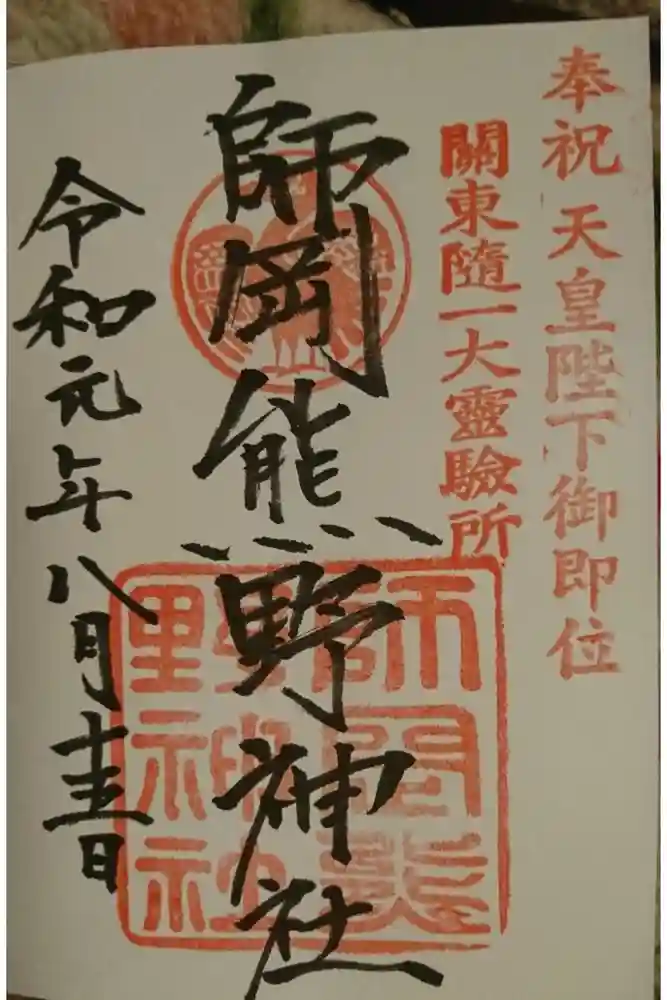 奉祝 天皇陛下御即位
關東隨一大靈驗所
師岡熊野神社
師岡熊
野神社
令和元年八月十五日